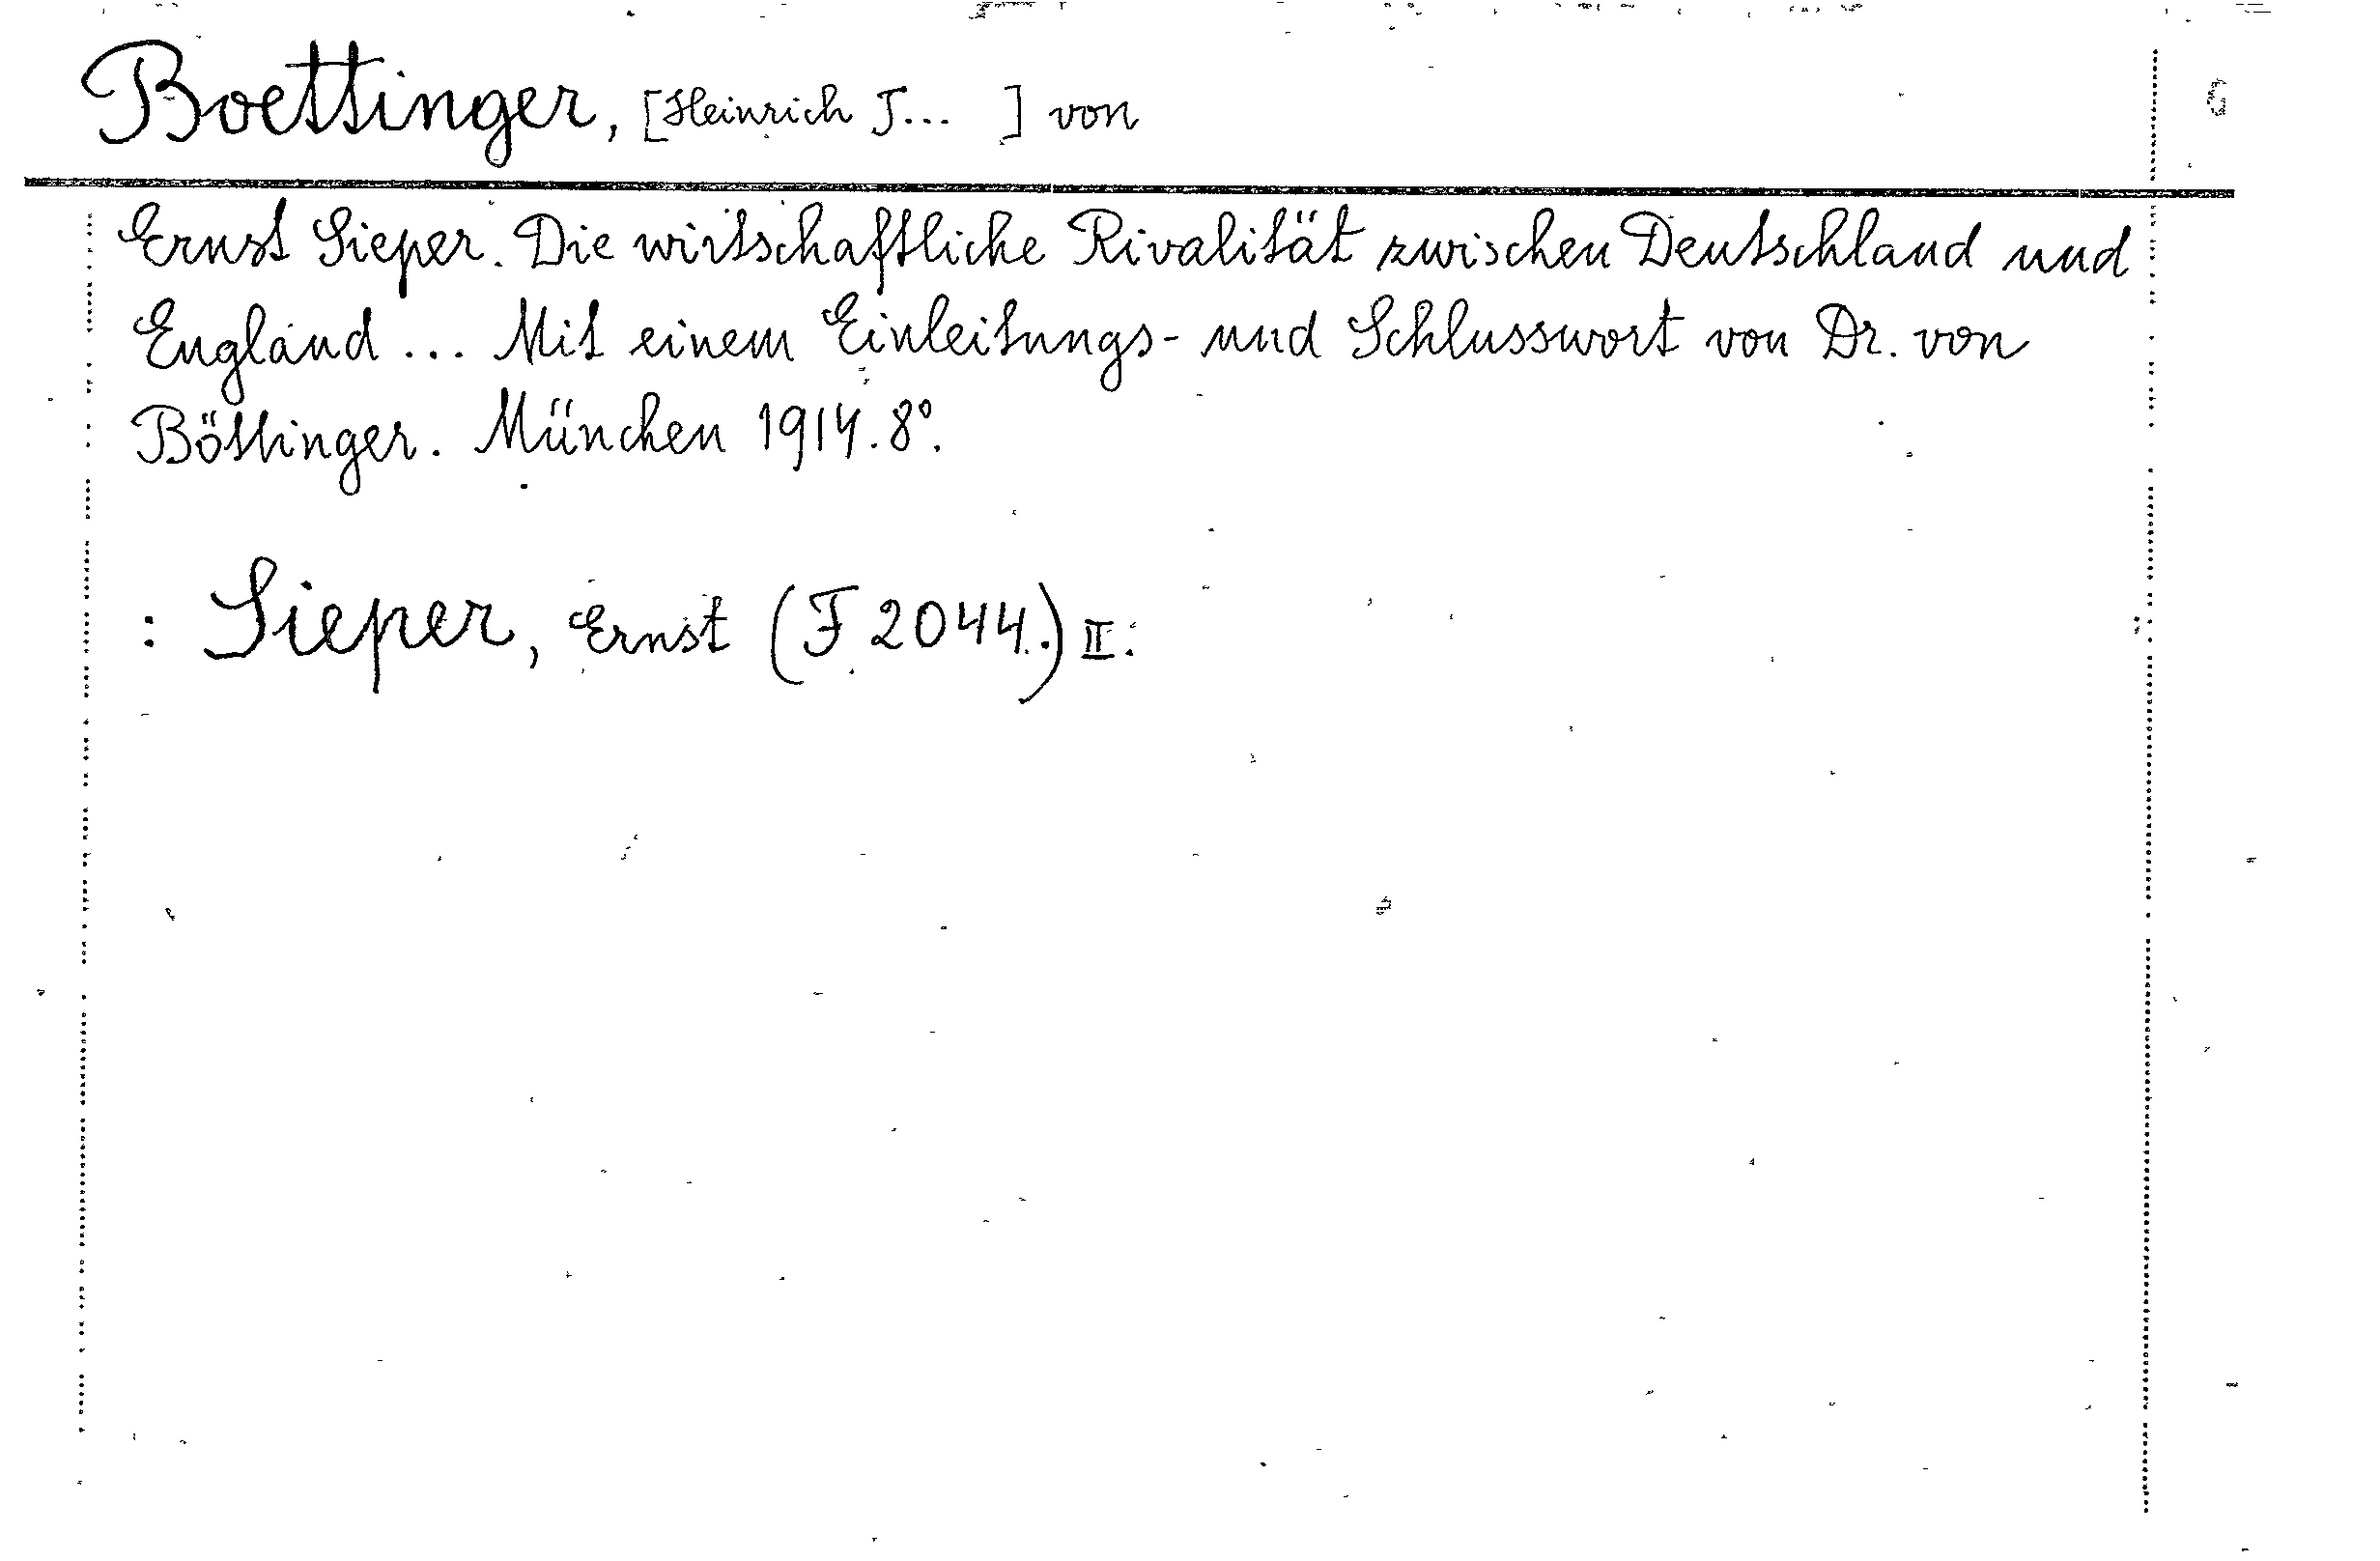 Boettinger, [Heinrich T... ] von
Ernst Sieper. Die wirtschaftliche Rivalität zwischen Deutschland und
England ... Mit einem Einleitungs- und Schlusswort von Dr. von
Böttinger. München 1914. 8°.
: Sieper, Ernst (F 2044.) II.